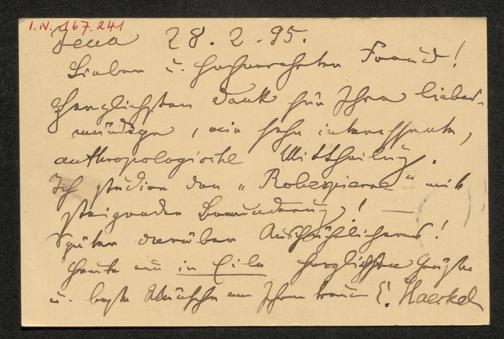 I.N. 167.241
Jena 28.2.95.
Lieber u. hochverehrter Freund!
Herzlichsten Dank für Ihre liebens-
würdige, wie sehr interessante,
anthropologische Mittheilung.
Ich studire den „Robespierre" mit
steigender Bewunderung! —
Später darüber Ausführlicheres!
Heute nur in Eile herzlichste Grüße
u. beste Wünsche von Ihrem treuen E. Haeckel